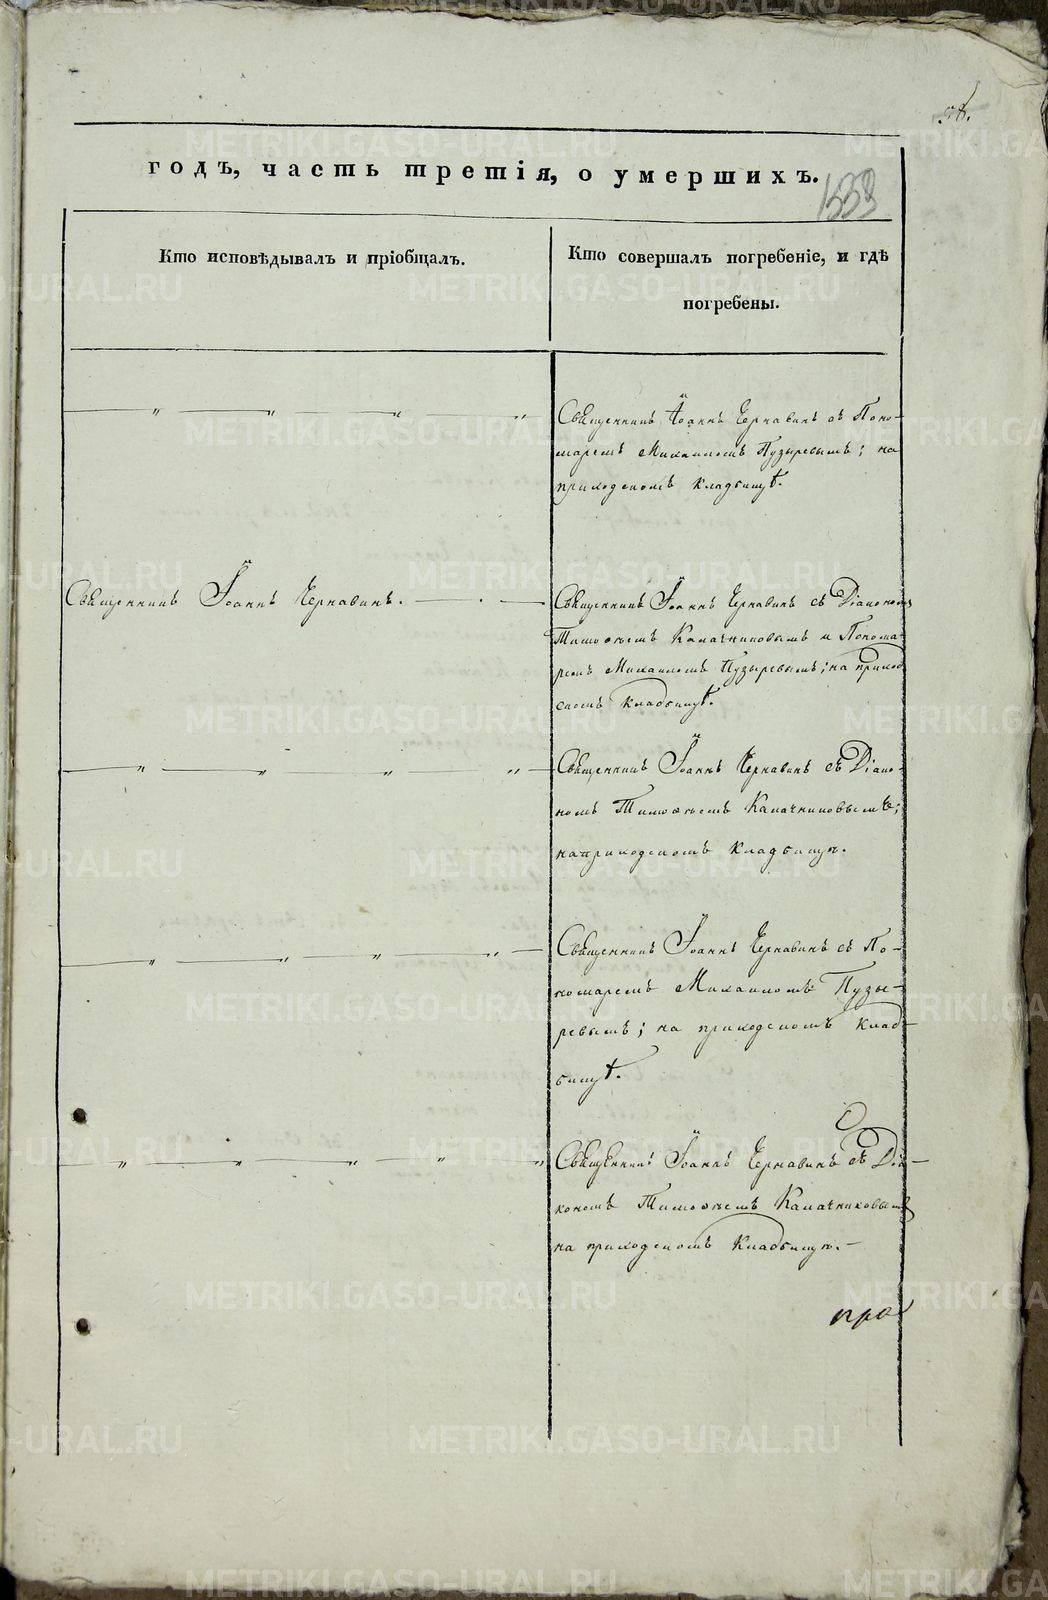 58.
годъ, часть третія, о умершихъ.
1339
Кто исповѣдывалъ и пріобщалъ.
Кто совершалъ погребеніе, и гдѣ
погребены.
Священникъ Іоаннъ Чернавинъ съ Поно-
маремъ Михаиломъ Пузыревымъ; на
приходскомъ кладбищѣ.
Священникъ Іоаннъ Чернавинъ.
Священникъ Іоаннъ Чернавинъ съ Діакономъ
Тимоѳеемъ Калачниковымъ и Понома-
ремъ Михаиломъ Пузыревымъ; на приход
скомъ кладбищѣ.
Священникъ Іоаннъ Чернавинъ съ Діако-
номъ Тимоѳеемъ Калачниковымъ;
на приходскомъ кладбищѣ.
Священникъ Іоаннъ Чернавинъ съ По-
номаремъ Михаиломъ Пузы-
ревымъ; на приходскомъ клад-
бищѣ.
Священникъ Іоаннъ Чернавинъ съ Діа-
кономъ Тимоѳеемъ Калачниковымъ
на приходскомъ кладбищѣ.
METRIKI.GASO-URAL.RU